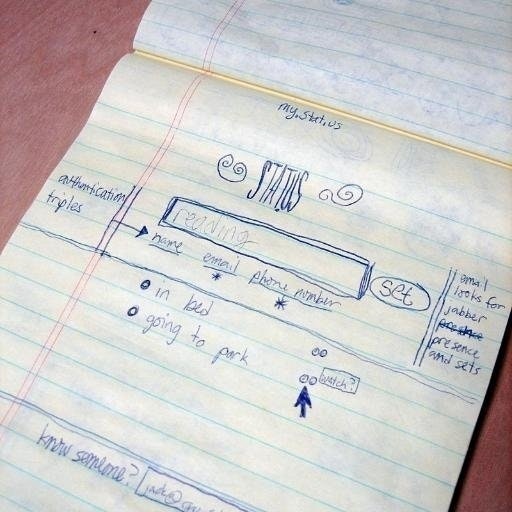 my.stat.us
STATUS
authentication
triples
reading
set
name email phone number
email
looks for
jabber
presence
presence
and sets
in bed
going to park
watch?
know someone?